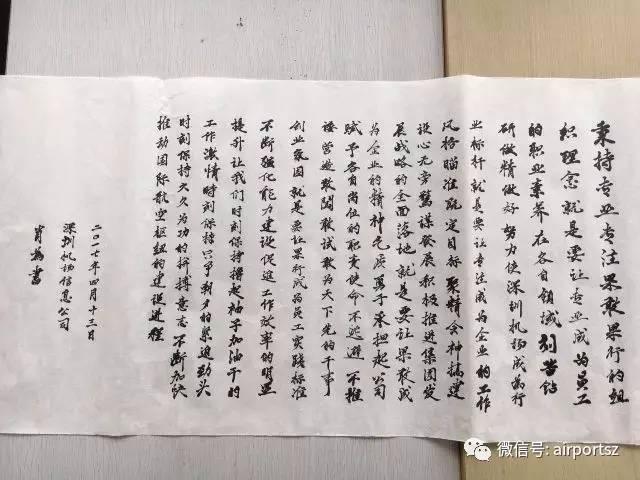 秉持专业专注果敢果行的组
织理念就是要让专业成为员工
的职业素养在各自领域刻苦钻
研做精做好努力使深圳机场成为行
业标杆就是要让专注成为企业的工作
风格瞄准既定目标聚精会神搞建
设心无旁骛谋发展积极推进集团发
展战略的全面落地就是要让果敢成
为企业的精神气质勇于承担起公司
赋予各自岗位的职责使命不逃避不推
诿营造敢闯敢试敢为天下先的干事
创业氛围就是要让果行成为员工实践标准
不断强化能力建设促进工作效率的明显
提升让我们时刻保持撸起袖子加油干的
工作激情时刻保持只争朝夕的紧迫劲头
时刻保持久久为功的拼搏意志不断加快
推动国际航空枢纽构建促进程
二〇一七年四月十三日
深圳机场信息公司
肖 书
微信号: airportsz